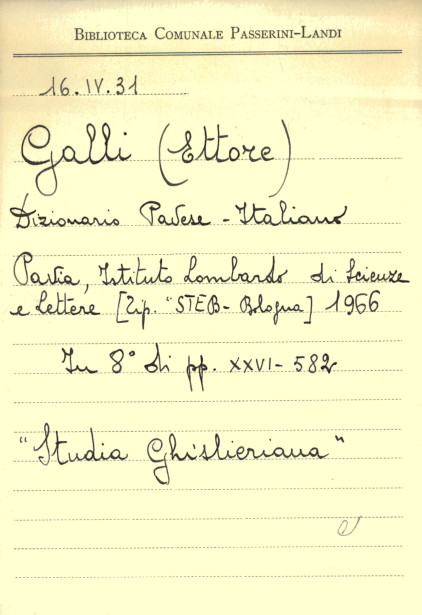 BIBLIOTECA COMUNALE PASSERINI-LANDI
16.IV.31
Galli (Ettore)
Dizionario Pavese - Italiano
Pavia, Istituto Lombardo di Scienze
e Lettere [Tip. "STEB - Bologna] 1966
In 8° di pp. XXVI - 582
"Studia Ghislieriana"